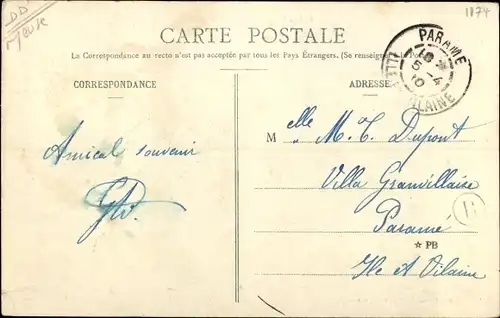 DD
Meuse
1174
CARTE POSTALE
La Correspondance au recto n'est pas acceptée par tous les Pays Étrangers. (Se renseigner à la Poste)
CORRESPONDANCE
ADRESSE
PARAMÉ
10
5-4
10
ILLE VILAINE
Amical souvenir
Melle M. T. Dupont
Villa Granvillaise
Paramé
☆ PB
Ile et Vilaine